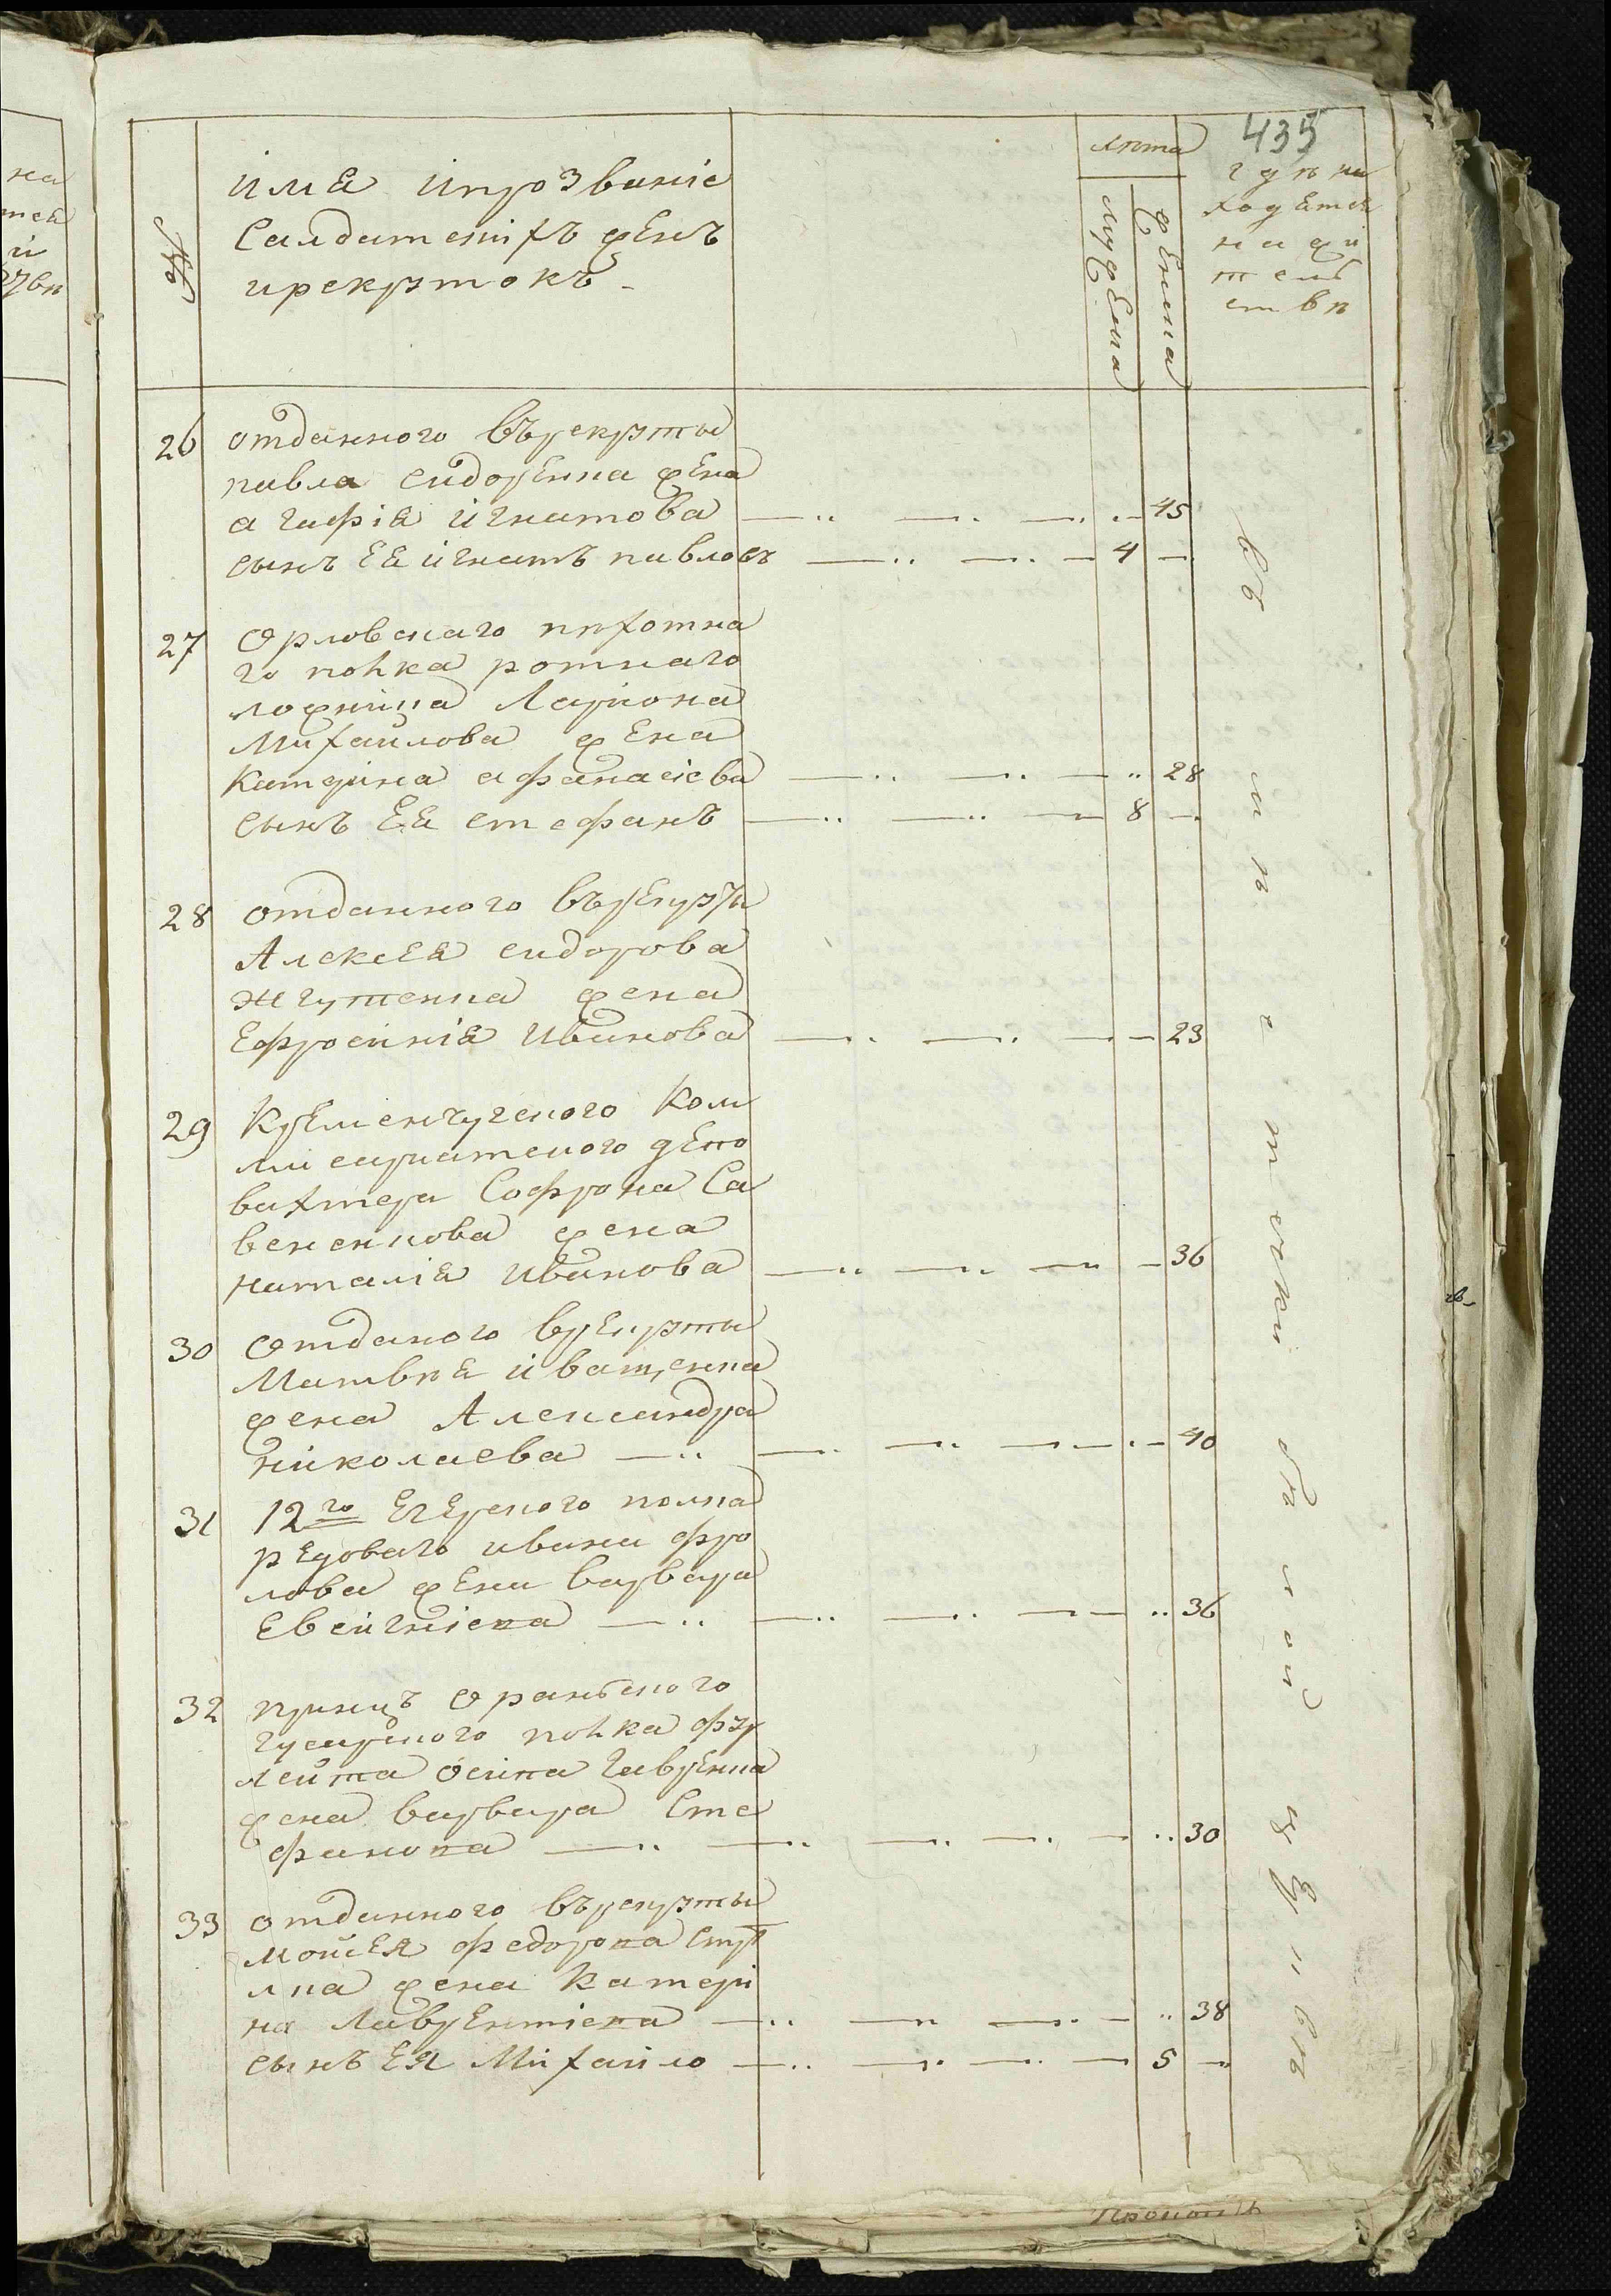 435
№
имя ипрозвание
Салдатскихъ женъ
ирекрутокъ
лѣта
мужеска
женска
гдѣ на
ходятся
нажи
тель
ствѣ
26 отданного върекруты
павла сидоренка жена
агафія игнатова 45
сынъ ея игнатъ павловъ 4
27 Орловскаго пѣхотна
го полка ротнаго
ложника Лариона
Михайлова жена
Катерина афанасіева 28
сынъ Ея стефанъ 8
28 отданного върекруты
Алексея сидорова
жена
Ефросинія Иванова 23
29 Кременчугского Ком
мисариатского депо
вахтера Софрона Са
жена
наталія Иванова 36
30 Отданого врекруты
Матвѣя иващенка
жена Александра
николаева 40
31 12го Егерского полка
редоваго ивана фро
лова жена варвара
Евсигніева 36
32 принцъ Оранского
гусарского полка фур
лейта осипа Гавренка
жена варвара Сте
фанова 30
33 отданного върекруты
мойсея федорова
жена Катери
на Лаврентіева 38
сынъ ея Михайло 5
въ